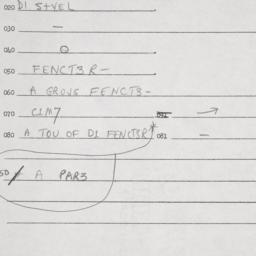 020 D1 S+VEL
030 —
040
050 FENCT3R-
060 A GROUS FENCT3-
070 C1M7 →
080 A TOU OF D1 FENCT3R* 081 —
5D A PAR3